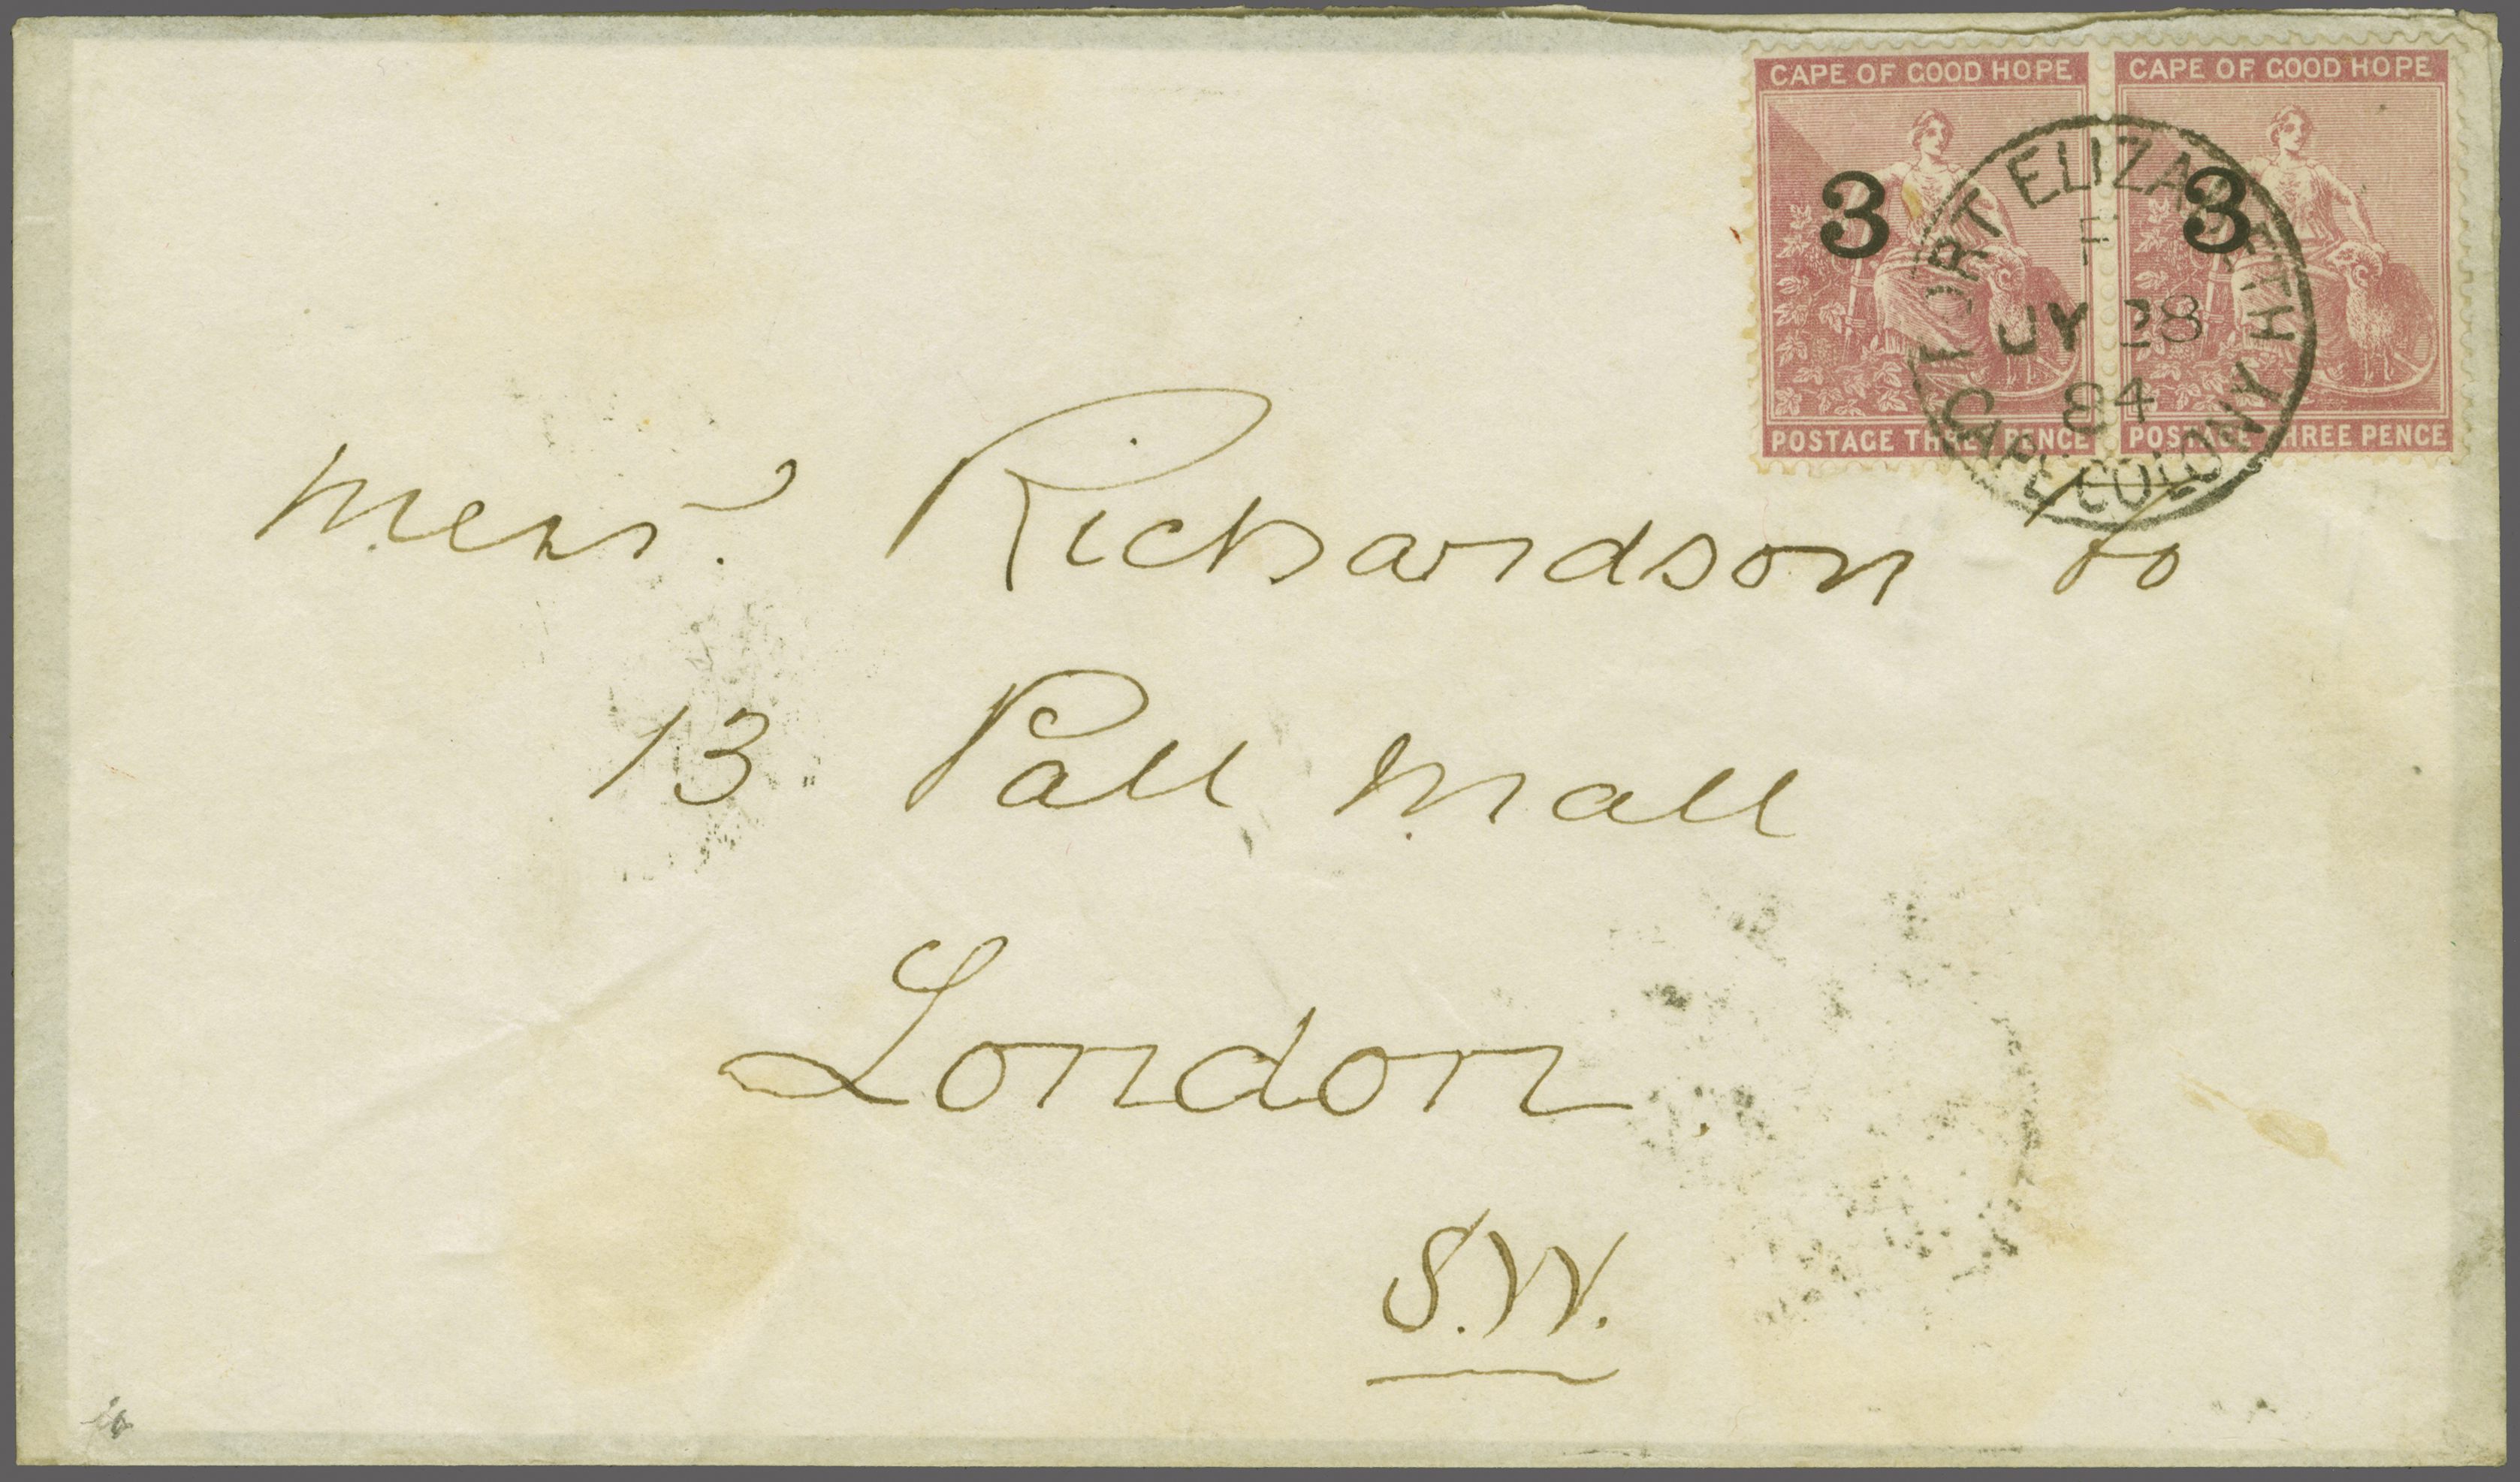 CAPE OF GOOD HOPE
3
POSTAGE THREE PENCE
CAPE OF GOOD HOPE
3
POSTAGE THREE PENCE
PORT ELIZABETH
JY 28
84
CAPE COLONY
Messrs. Richardson Co
13 Pall Mall
London.
S.W.